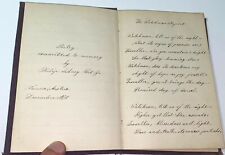 Poetry
committed to memory
by
Philip Sidney
Vienna, Austria
December
The Watchman's Report.
Watchman, tell us of the night,
What its signs of promise are;
Traveller, o'er yon mountain's height
See that glory-beaming star
Watchman, does its beauteous ray
Aught of hope or joy foretell?
Traveller, yes; it brings the day
Promised day of Israel
Watchman, tell us of the night;
Higher yet that star ascends
Traveller, blessedness and light,
Peace and truth its course portends